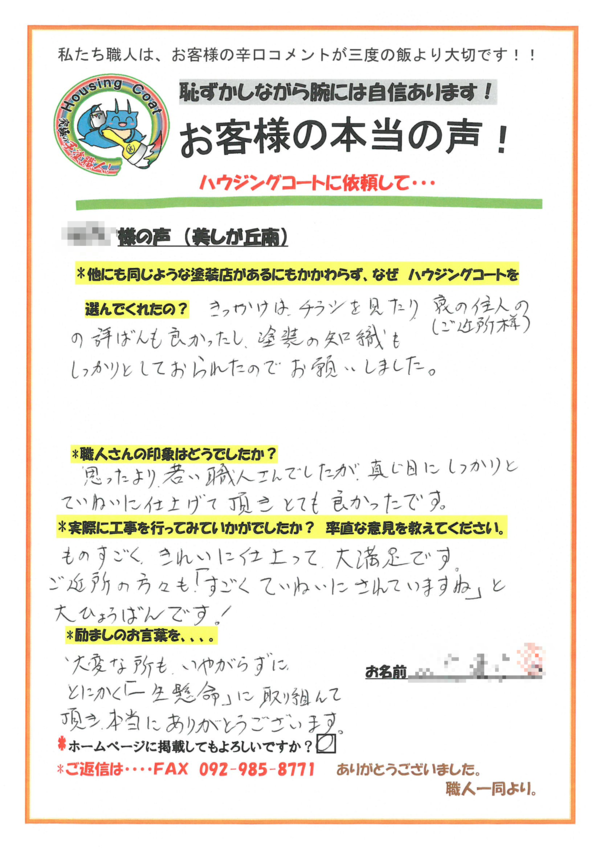 私たち職人は、お客様の辛口コメントが三度の飯より大切です！！
Housing Coat
恥ずかしながら腕には自信あります！
お客様の本当の声！
ハウジングコートに依頼して・・・
様の声（美しが丘南）
*他にも同じような塗装店があるにもかかわらず、なぜ ハウジングコートを
選んでくれたの？ きっかけは、チラシを見たり 裏の住人の
(ご近所様)
の評ばんも良かったし、塗装の知識も
しっかりとしておられたのでお願いしました。
*職人さんの印象はどうでしたか？
思ったより、若い職人さんでしたが、真じ目にしっかりと
ていねいに仕上げて頂きとても良かったです。
*実際に工事を行ってみていかがでしたか？ 率直な意見を教えてください。
ものすごく、きれいに仕上って、大満足です。
ご近所の方々も、「すごくていねいにされていますね」と
大ひょうばんです！
*励ましのお言葉を、、、。
大変な所も、いやがらずに、
とにかく「一生懸命」に取り組んで
頂き、本当にありがとうございます。
お名前
*ホームページに掲載してもよろしいですか？
*ご返信は・・・・FAX 092-985-8771 ありがとうございました。
職人一同より。